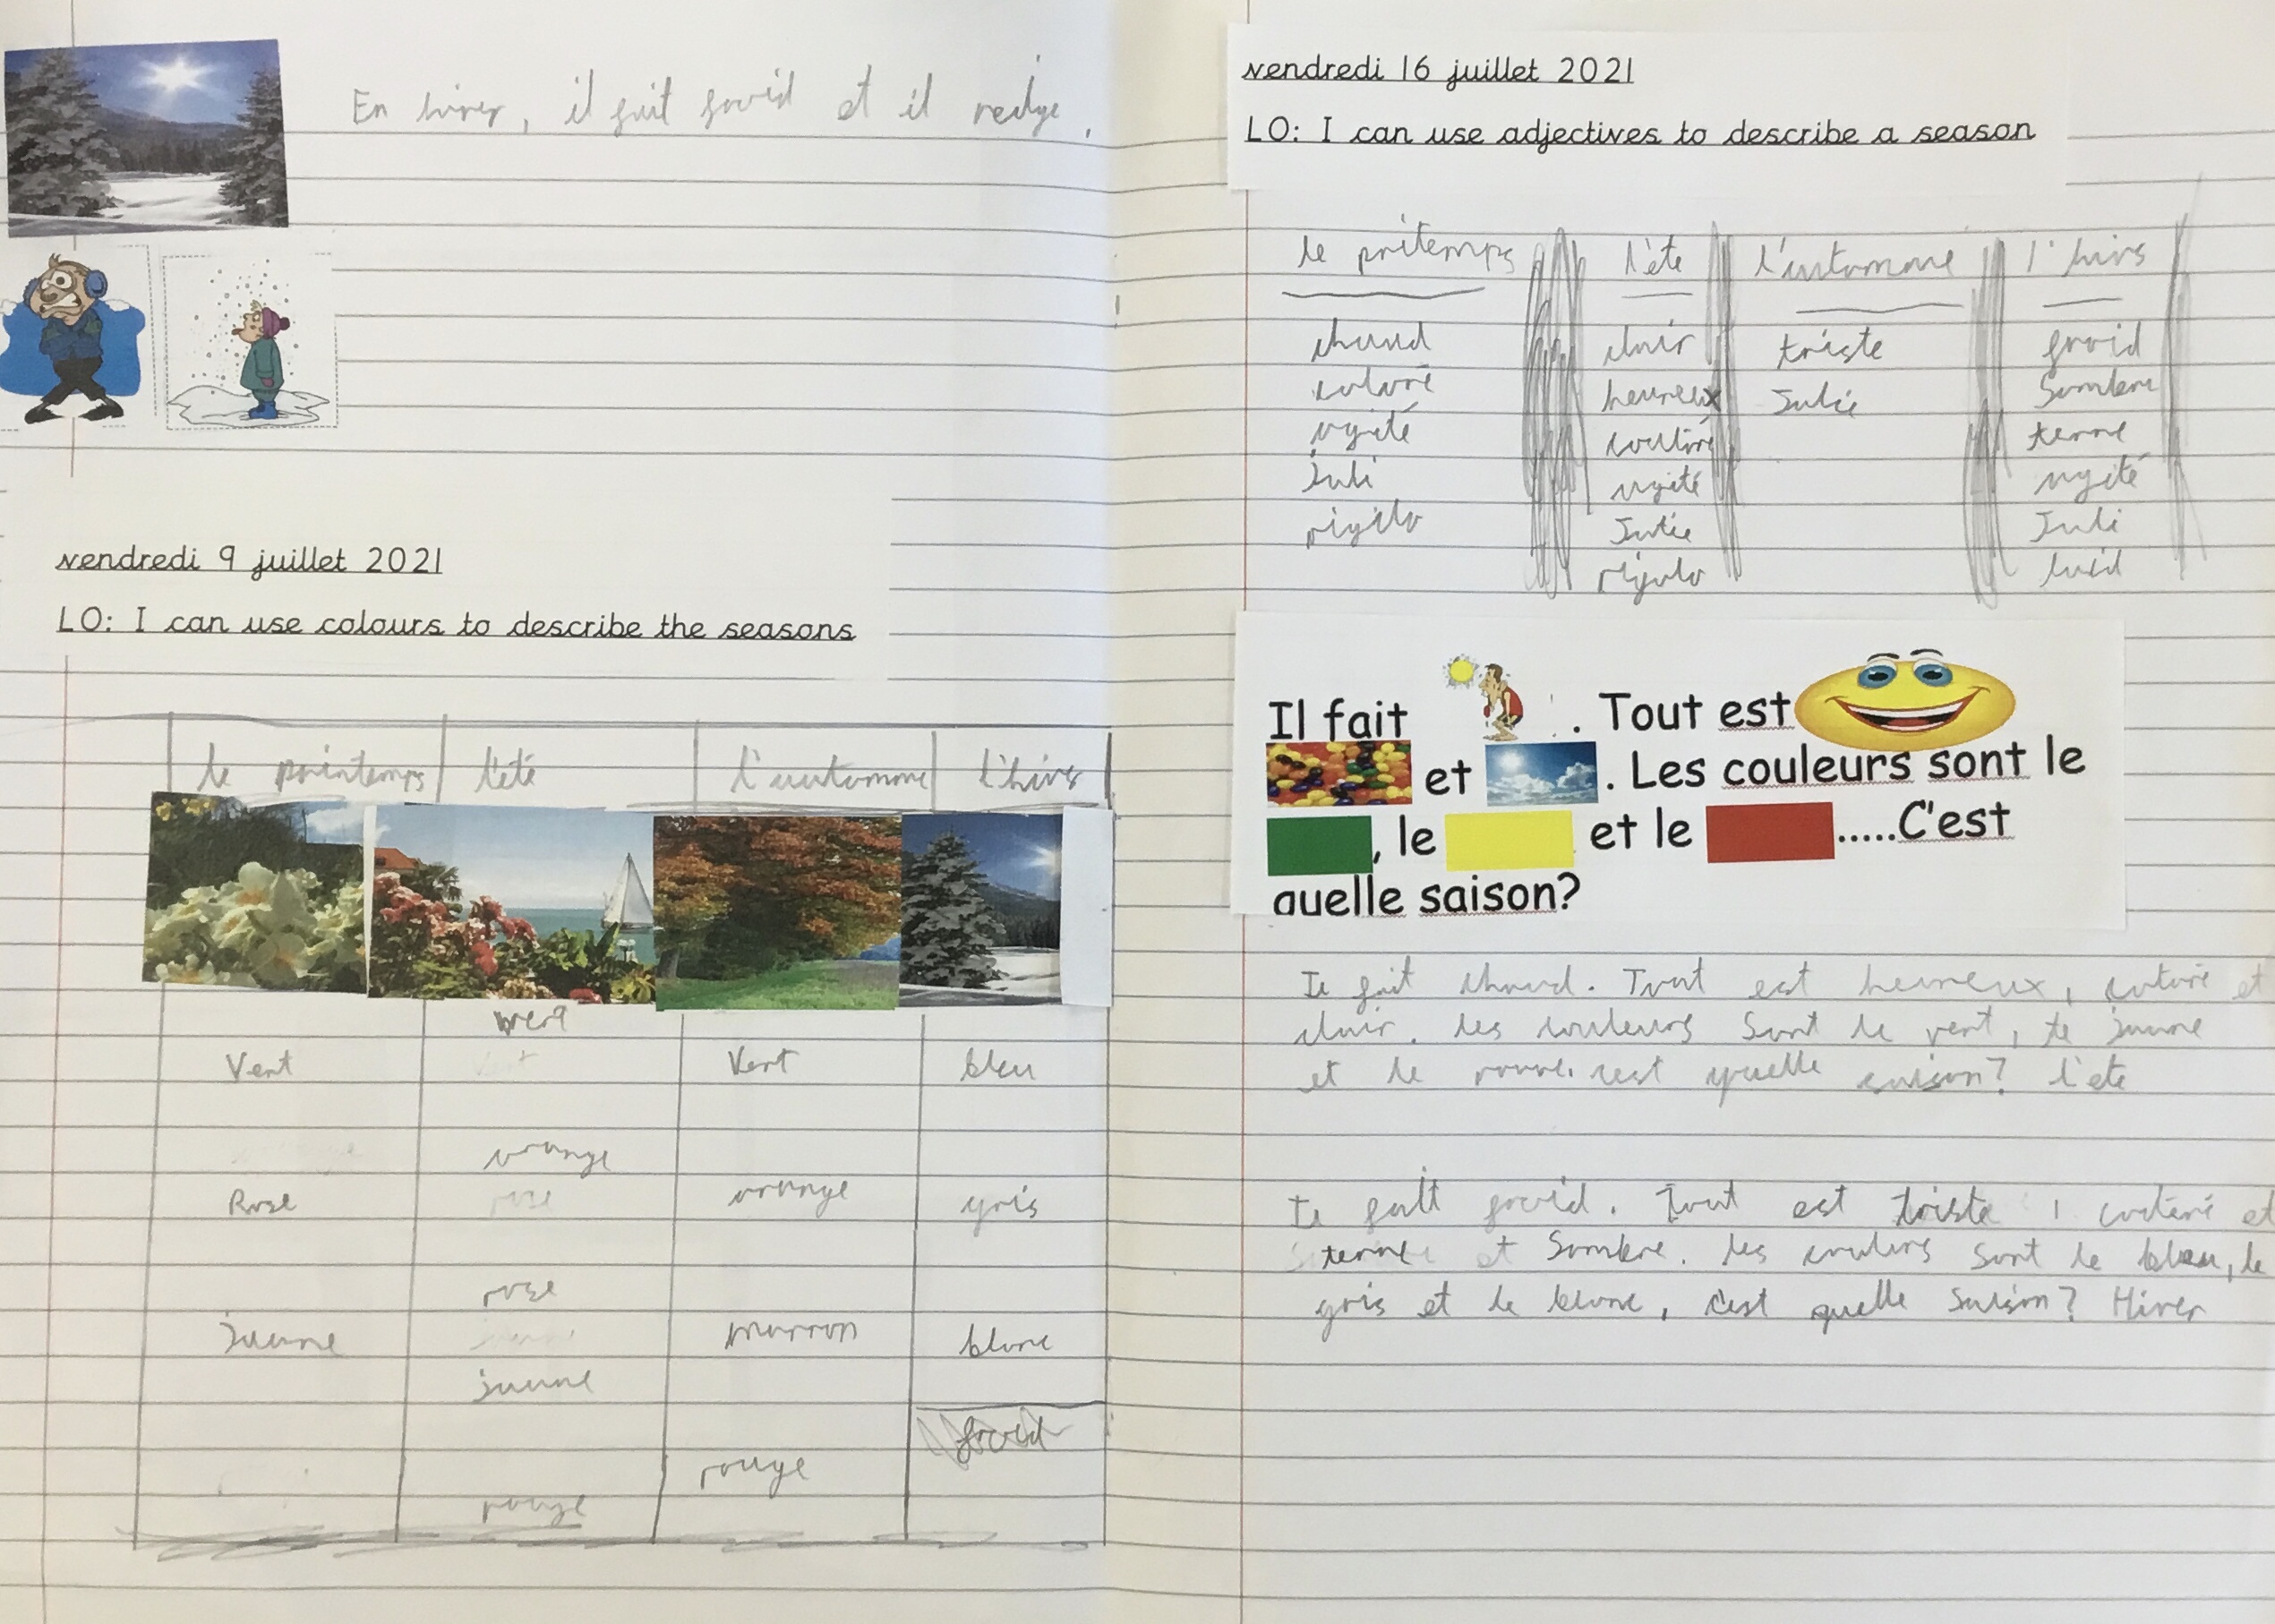 En hiver, il fait froid et il neige.
vendredi 9 juillet 2021
LO: I can use colours to describe the seasons
le printemps l'été l'automne l'hivs
vert
Vert Vert bleu
orange
Rose rose orange gris
rose
jaune marron blanc
jaune
froid
rouge
rouge
vendredi 16 juillet 2021
LO: I can use adjectives to describe a season
le pritemps l'été l'automne l'hivs
chaud clair triste froid
coloré heureux Julie Sombre
agité terne
Juli agité agité
rigolo Julie Juli
rigolo laid
Il fait . Tout est
et . Les couleurs sont le
, le et le .....C'est
quelle saison?
fait chaud. Tout est heureux, coloré et
clair. les couleurs sont le vent, le jaune
et le cest quelle saison? l'ete
froid. Tout est triste, et
terne et Sombre. les coulurs sont le bleu, le
gris et le blanc, c'est quelle saison? Hiver